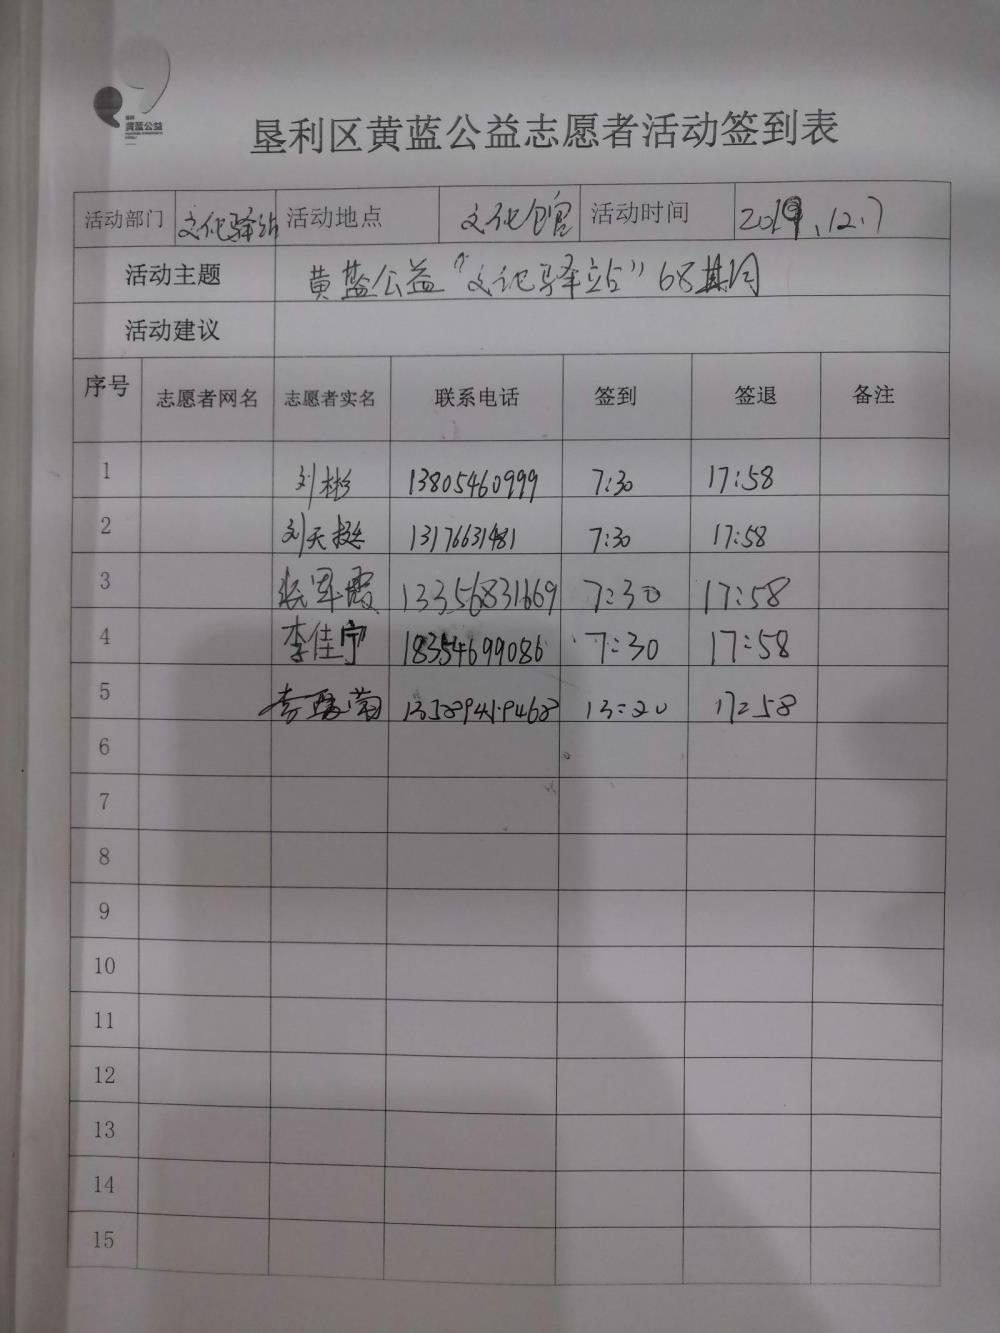 黄蓝公益
垦利区黄蓝公益志愿者活动签到表
活动部门 文化驿站 活动地点 文化馆 活动时间 2019.12.7
活动主题 黄蓝公益“文化驿站”68期
活动建议
序号 志愿者网名 志愿者实名 联系电话 签到 签退 备注
1 刘彬 13805460999 7:30 17:58
2 刘天挺 13176631481 7:30 17:58
3 张军霞 13356831669 7:30 17:58
4 李佳宁 18354699086 7:30 17:58
5 李 13:20 17:58
6
7
8
9
10
11
12
13
14
15